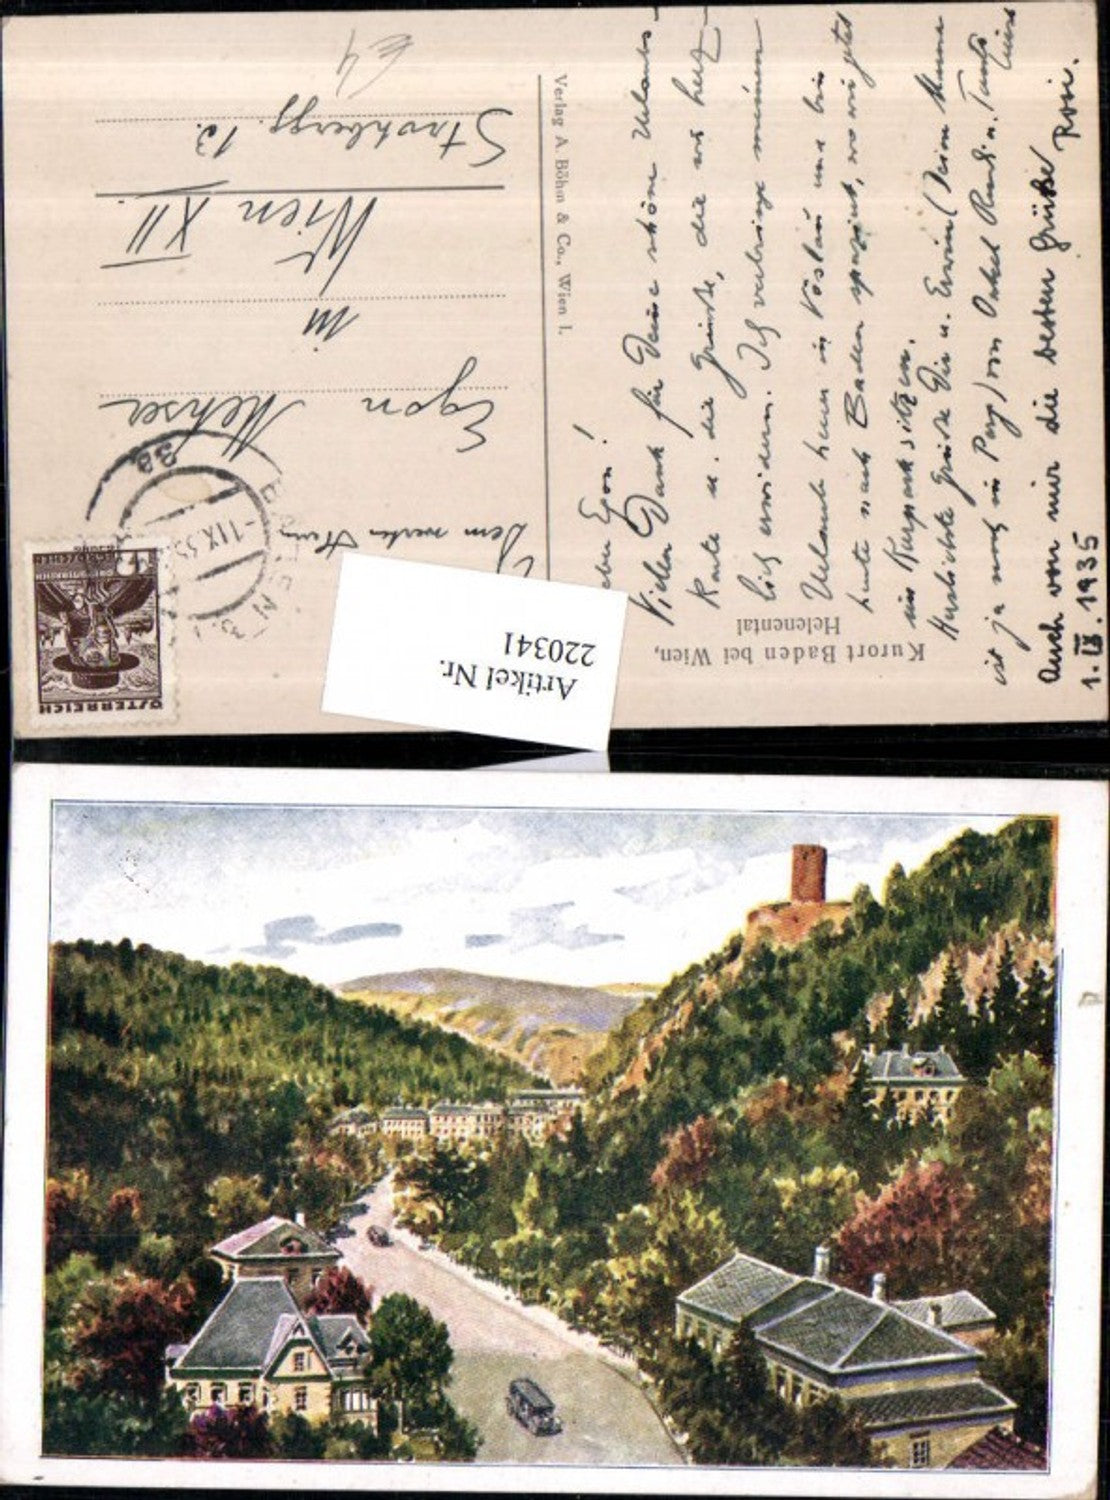 Kurort Baden bei Wien,
Helenental
Verlag A. Böhm & Co., Wien I.
Artikel Nr.
220341
ÖSTERREICH
BADEN
-1.IX.35
3a
Dem werten Herrn
Egon
in
Wien XII.
13.
£4
Egon!
Vielen Dank für Deine schöne Urlaubs-
karte u. die Grüße, die wir herz-
lich erwidern. Ich verbringe meinen
Urlaub heuer in Vöslau und bin
heute nach Baden spaziert, wo wir jetzt
im Kurpark sitzen.
Herzlichste Grüße Dir u. Erwin (Deine Mama
ist ja noch in Perg) von Onkel Rud. u. Tante
Auch von mir die besten Grüße Rosi.
1. IX. 1935